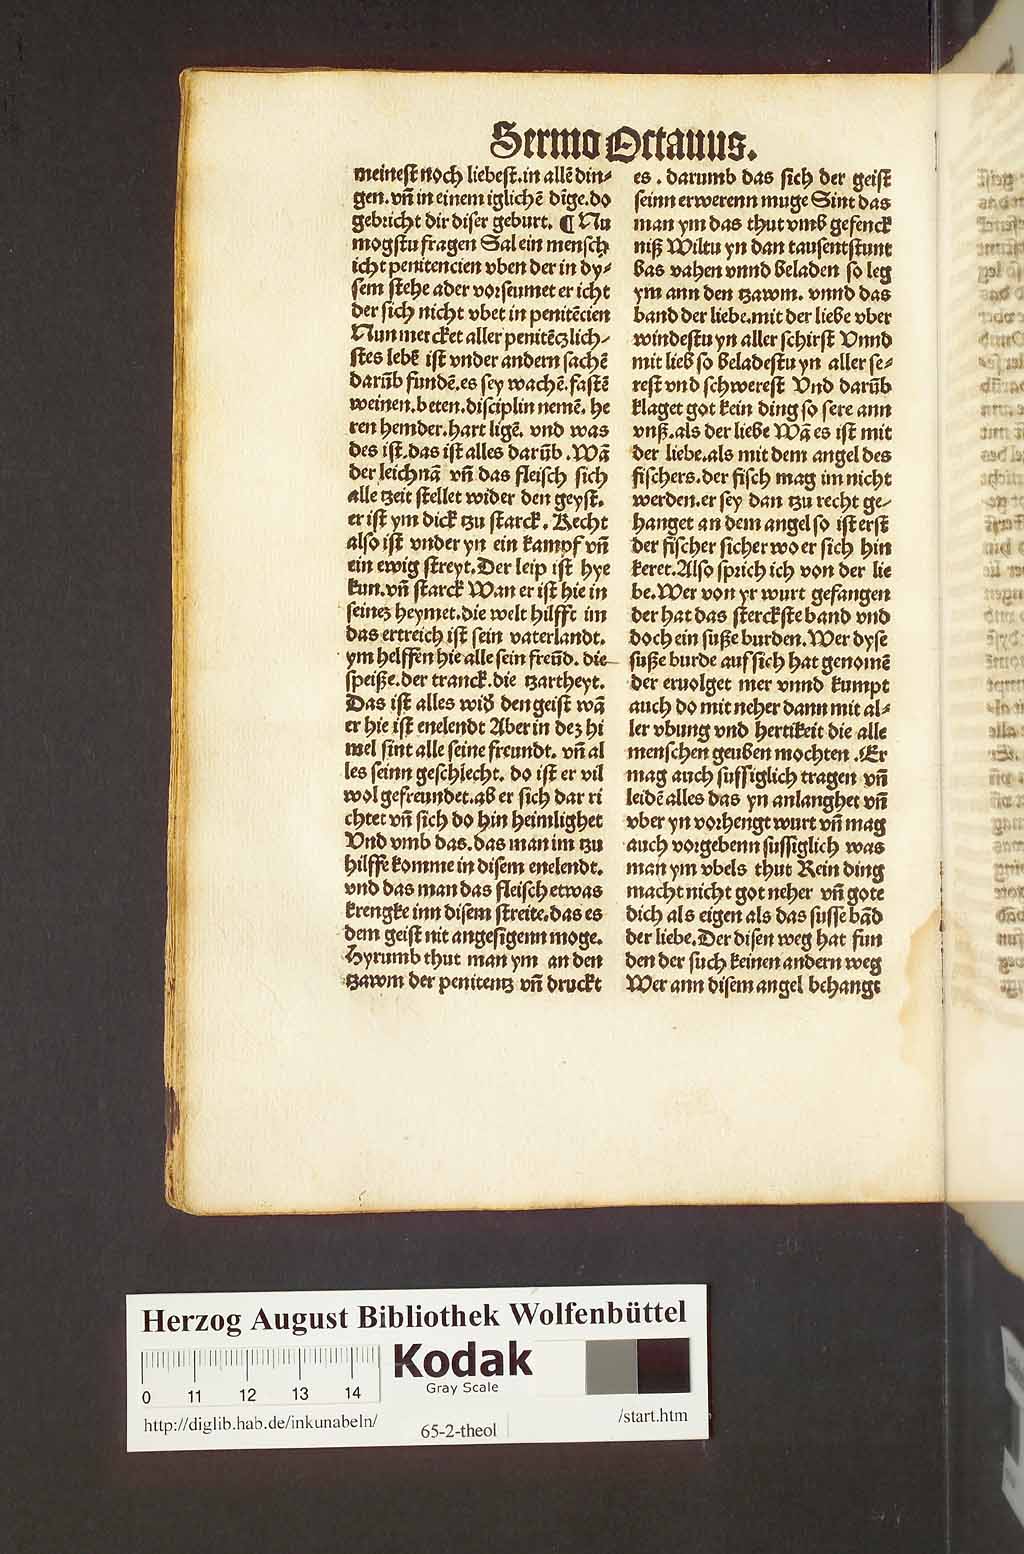 Sermo Octauus.
meinest noch liebest.in allē din⸗
gen.vñ in einem iglichē dīge.do
gebricht dir diser geburt. ¶ Nu
mogstu fragen Sal ein mensch
icht penitencien vben der in dy⸗
sem stehe ader vorseumet er icht
der sich nicht vbet in penitēcien
Nun mercket aller penitēczlich⸗
stes lebē ist vnder andern sachē
darūb fundē.es sey wachē.fastē
weinen.beten.disciplin nemē. he
ren hemder.hart ligē. vnd was
des ist.das ist alles darūb .Wā
der leichnā vñ das fleisch sich
alle tzeit stellet wider den geyst.
er ist ym dick tzu starck. Recht
also ist vnder yn ein kampf vñ
ein ewig streyt.Der leip ist hye
kun.vñ starck Wan er ist hie in
seinez heymet.die welt hilfft im
das ertreich ist sein vaterlandt.
ym helffen hie alle sein freūd. die
speiße.der tranck.die tzartheyt.
Das ist alles wiď den geist wā
er hie ist enelendt Aber in dez hi
mel sint alle seine freundt. vñ al
les seinn geschlecht. do ist er vil
wol gefreundet.ab er sich dar ri
chtet vñ sich do hin heimlighet
Vnd vmb das.das man im tzu
hilffe komme in disem enelendt.
vnd das man das fleisch etwas
krengke inn disem streite.das es
dem geist nit angesigenn moge.
Hyrumb thut man ym an den
tzawm der penitentz vñ druckt
es . darumb das sich der geist
seinn erwerenn muge Sint das
man ym das thut vmb gefenck
niß Wiltu yn dan tausentstunt
bas vahen vnnd beladen so leg
ym ann den tzawm. vnnd das
band der liebe.mit der liebe vber
windestu yn aller schirst Vnnd
mit lieb so beladestu yn aller se⸗
rest vnd schwerest Vnd darūb
klaget got kein ding so sere ann
vnß.als der liebe Wā es ist mit
der liebe.als mit dem angel des
fischers.der fisch mag im nicht
werden.er sey dan tzu recht ge⸗
hanget an dem angel so ist erst
der fischer sicher wo er sich hin
keret.Also sprich ich von der lie
be.Wer von yr wurt gefangen
der hat das sterckste band vnd
doch ein suße burden.Wer dyse
suße burde auf sich hat genomē
der eruolget mer vnnd kumpt
auch do mit neher dann mit al⸗
ler vbung vnd hertikeit die alle
menschen geuben mochten .Er
mag auch sussiglich tragen vñ
leidē alles das yn anlanghet vñ
vber yn vorhengt wurt vñ mag
auch vorgebenn sussiglich was
man ym vbels thut Kein ding
macht nicht got neher vñ gote
dich als eigen als das susse bād
der liebe.Der disen weg hat fun
den der such keinen andern weg
Wer ann disem angel behangt
Herzog August Bibliothek Wolfenbüttel
Kodak
Gray Scale
0 11 12 13 14
http://diglib.hab.de/inkunabeln/
65-2-theol
/start.htm